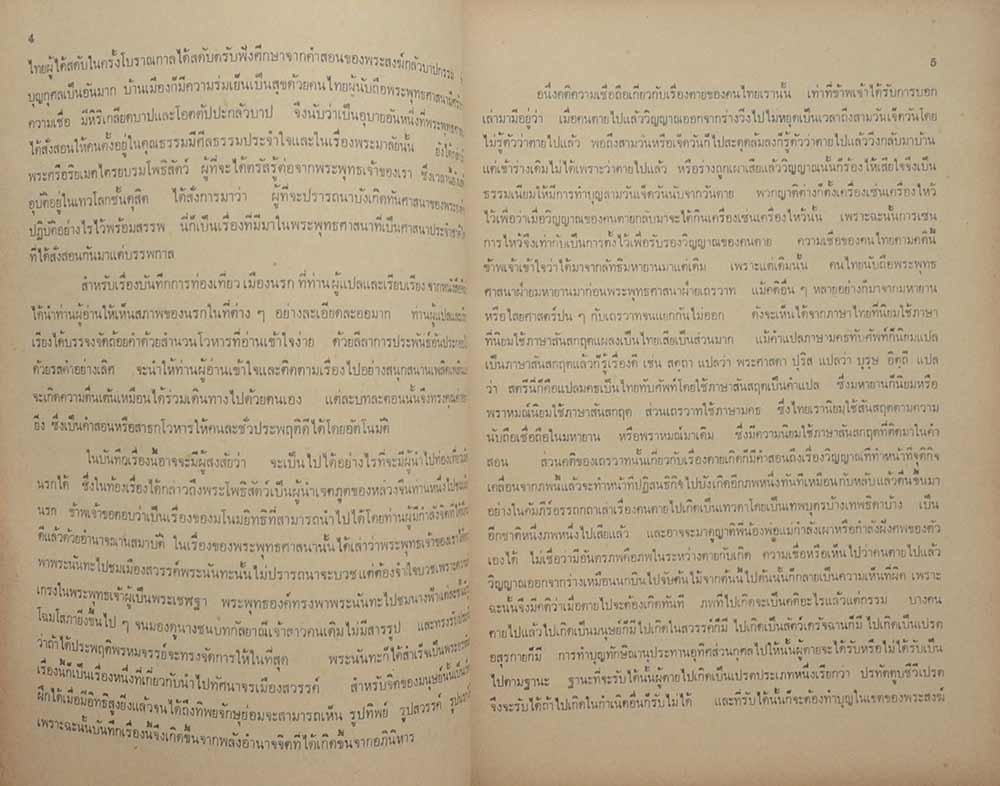 4
ไทยผู้ได้สดับในครั้งโบราณกาลได้สดับตรับฟังศึกษาจากคำสอนของพระสงฆ์กลัวบาปกรรม
บุญกุศลเป็นอันมาก บ้านเมืองก็มีความร่มเย็นเป็นสุขด้วยคนไทยผู้นับถือพระพุทธศาสนา
ความเชื่อ มีหิริเกลียดบาปและโอตตัปปะกลัวบาป จึงนับว่าเป็นอุบายอันหนึ่งที่
ได้สั่งสอนให้คนตั้งอยู่ในคุณธรรมมีศีลธรรมประจำใจและในเรื่องพระมาลัยนั้น
พระศรีอริยเมตไตรยบรมโพธิสัตว์ ผู้ที่จะได้ตรัสรู้ต่อจากพระพุทธเจ้าของเรา
อุบัติอยู่ในเทวโลกชั้นดุสิต ได้สั่งการมาว่า ผู้ที่จะปรารถนาบังเกิดทันศาสนาของ
ปฏิบัติอย่างไรไว้พร้อมสรรพ นี่ก็เป็นเรื่องที่มีมาในพระพุทธศาสนาที่เป็นศาสนาประจำชาติ
ที่ได้สั่งสอนกันมาแต่บรรพกาล
สำหรับเรื่องบันทึกการท่องเที่ยว เมืองนรก ที่ท่านผู้แปลและเรียบเรียง
ได้นำท่านผู้อ่านให้เห็นสภาพของนรกในที่ต่าง ๆ อย่างละเอียดละออมาก ท่านผู้แปล
เรียงได้บรรจงจัดถ้อยคำด้วยสำนวนโวหารที่อ่านเข้าใจง่าย ด้วยลีลาการประพันธ์อัน
ด้วยรสคำอย่างเลิศ จะนำให้ท่านผู้อ่านเข้าใจและติดตามเรื่องไปอย่างสนุกสนาน
จะเกิดความตื่นเต้นเหมือนได้ร่วมเดินทางไปด้วยตนเอง แต่ละบทละตอนนั้นจึงทรงคุณค่า
ยิ่ง ซึ่งเป็นคำสอนหรือสาธกโวหารให้คนละชั่วประพฤติดีได้โดยอัตโนมัติ
ในบันทึกเรื่องนี้อาจจะมีผู้สงสัยว่า จะเป็นไปได้อย่างไรที่จะมีผู้นำไปท่องเที่ยว
นรกได้ ซึ่งในท้องเรื่องได้กล่าวถึงพระโพธิสัตว์เป็นผู้นำเจตภูตของหลวงจีนท่านหนึ่งไป
นรก ข้าพเจ้าขอตอบว่าเป็นเรื่องของมโนมยิทธิที่สามารถนำไปได้โดยท่านผู้มีกำลังจิตที่
ดีแล้วด้วยอำนาจฌานสมาบัติ ในเรื่องของพระพุทธศาสนานั้นได้เล่าว่าพระพุทธเจ้าของเรา
พาพระนันทะไปชมเมืองสวรรค์พระนันทะนั้นไม่ปรารถนาจะบวช แต่ต้องจำใจบวชเพราะ
เกรงในพระพุทธเจ้าผู้เป็นพระเชษฐา พระพุทธองค์ทรงพาพระนันทะไปชมนางฟ้า
โฉมโสภายิ่งขึ้นไป ๆ จนมองดูนางชนบทกัลยาณีเจ้าสาวคนเดิมไม่มีสารรูป และทรงรับ
ว่าถ้าได้ประพฤติพรหมจรรย์จะทรงจัดการให้ในที่สุด พระนันทะก็ได้สำเร็จเป็นพระ
เรื่องนี้ก็เป็นเรื่องหนึ่งที่เกี่ยวกับนำไปทัศนาจรเมืองสวรรค์ สำหรับจิตของมนุษย์นั้น
ฝึกได้เมื่อมีอิทธิสูงยิ่งแล้วจนได้ถึงทิพย์จักษุย่อมจะสามารถเห็น รูปทิพย์ รูปสวรรค์
เพราะฉะนั้นบันทึกเรื่องนี้จึงเกิดขึ้นจากพลังอำนาจจิตที่ได้เกิดขึ้นจากอภินิหาร
5
อนึ่งคติความเชื่อถือเกี่ยวกับเรื่องตายของคนไทยเรานั้น เท่าที่ข้าพเจ้าได้รับการบอก
เล่ามามีอยู่ว่า เมื่อคนตายไปแล้ววิญญาณออกจากร่างวิ่งไปไม่หยุดเป็นเวลาถึงสามวันเจ็ดวันโดย
ไม่รู้ตัวว่าตายไปแล้ว พอถึงสามวันหรือเจ็ดวันก็ไปสะดุดล้มลงก็รู้ตัวว่าตายไปแล้ววิ่งกลับมาบ้าน
แต่เข้าร่างเดิมไม่ได้เพราะว่าตายไปแล้ว หรือร่างถูกเผาเสียแล้ววิญญาณนั้นก็ร้องไห้เสียใจจึงเป็น
ธรรมเนียมให้มีการทำบุญสามวันเจ็ดวันนับจากวันตาย พวกญาติต่างก็ตั้งเครื่องเซ่นเครื่องไหว้
ไว้เพื่อว่าเมื่อวิญญาณของคนตายกลับมาจะได้กินเครื่องเซ่นเครื่องไหว้นั้น เพราะฉะนั้นการเซ่น
การไหว้จึงเท่ากับเป็นการตั้งไว้เพื่อรับรองวิญญาณของคนตาย ความเชื่อของคนไทยตามคตินี้
ข้าพเจ้าเข้าใจว่าได้มาจากลัทธิมหายานมาแต่เดิม เพราะแต่เดิมนั้น คนไทยนับถือพระพุทธ
ศาสนาฝ่ายมหายานมาก่อนพระพุทธศาสนาฝ่ายเถรวาท แม้คติอื่น ๆ หลายอย่างก็มาจากมหายาน
หรือไสยศาสตร์ปน ๆ กับเถรวาทจนแยกกันไม่ออก ดังจะเห็นได้จากภาษาไทยที่นิยมใช้ภาษา
ที่นิยมใช้ภาษาสันสกฤตแผลงเป็นไทยเสียเป็นส่วนมาก แม้คำแปลภาษามคธทับศัพท์ก็นิยมแปล
เป็นภาษาสันสกฤตแล้วก็รู้เรื่องดี เช่น สตฺถา แปลว่า พระศาสดา ปุริส แปลว่า บุรุษ อิตฺถี แปล
ว่า สตรีนี่ก็คือแปลมคธเป็นไทยทับศัพท์โดยใช้ภาษาสันสกฤตเป็นคำแปล ซึ่งมหายานก็นิยมหรือ
พราหมณ์นิยมใช้ภาษาสันสกฤต ส่วนเถรวาทใช้ภาษามคธ ซึ่งไทยเรานิยมใช้สันสกฤตตามความ
นับถือเชื่อถือในมหายาน หรือพราหมณ์มาเดิม ซึ่งมีความนิยมใช้ภาษาสันสกฤตที่ติดมาในคำ
สอน ส่วนคติของเถรวาทนั้นเกี่ยวกับเรื่องตายเกิดก็มีคำสอนถึงเรื่องวิญญาณที่ทำหน้าที่จุติกิจ
เคลื่อนจากภพนี้แล้วจะทำหน้าที่ปฏิสนธิกิจไปบังเกิดอีกภพหนึ่งทันทีเหมือนกับหลับแล้วตื่นขึ้นมา
อย่างในคัมภีร์อรรถกถาเล่าเรื่องคนตายไปเกิดเป็นเทวดาโดยเป็นเทพบุตรบ้างเทพธิดาบ้าง เป็น
อีกชาติหนึ่งภพหนึ่งไปเสียแล้ว และอาจจะมาดูญาติพี่น้องพ่อแม่กำลังเผาหรือกำลังฝังศพของตัว
เองได้ ไม่เชื่อว่ามีอันตรภพคือภพในระหว่างตายกับเกิด ความเชื่อหรือเห็นไปว่าคนตายไปแล้ว
วิญญาณออกจากร่างเหมือนนกบินไปจับต้นไม้จากต้นนี้ไปต้นนั้นก็กลายเป็นความเห็นที่ผิด เพราะ
ฉะนั้นจึงมีคติว่าเมื่อตายไปจะต้องเกิดทันที ภพที่ไปเกิดจะเป็นคติอะไรแล้วแต่กรรม บางคน
ตายไปแล้วไปเกิดเป็นมนุษย์ก็มีไปเกิดในสวรรค์ก็มี ไปเกิดเป็นสัตว์เดรัจฉานก็มี ไปเกิดเป็นเปรต
อสุรกายก็มี การทำบุญทักษิณานุประทานอุทิศส่วนกุศลไปให้นั้นผู้ตายจะได้รับหรือไม่ได้รับเป็น
ไปตามฐานะ ฐานะที่จะรับได้นั้นผู้ตายไปเกิดเป็นเปรตประเภทหนึ่งเรียกว่า ปรทัตตูปชีวีเปรต
จึงจะรับได้ถ้าไปเกิดในกำเนิดอื่นก็รับไม่ได้ และที่รับได้นั้นก็จะต้องทำบุญในเขตของพระสงฆ์